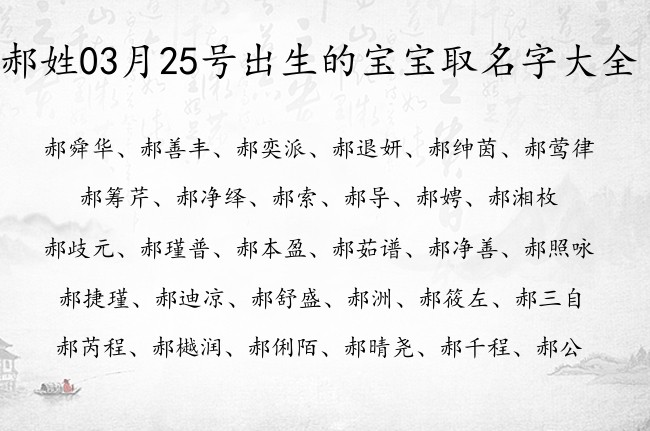 郝姓03月25号出生的宝宝取名字大全
郝舜华、郝善丰、郝奕派、郝退妍、郝绅茵、郝莺律
郝筹芹、郝净绎、郝索、郝导、郝娉、郝湘枚
郝歧元、郝瑾普、郝本盈、郝茹谱、郝净善、郝照咏
郝捷瑾、郝迪凉、郝舒盛、郝洲、郝筱左、郝三自
郝芮程、郝樾润、郝俐陌、郝晴尧、郝千程、郝公